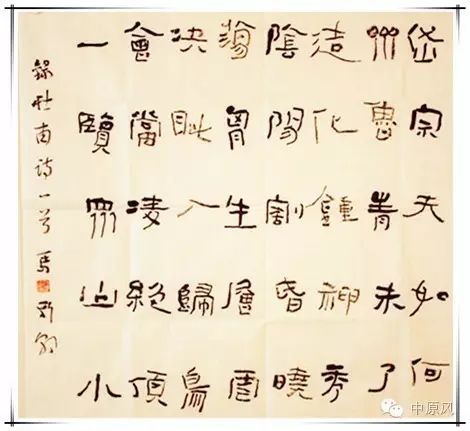 岱宗天如何
齊魯青未了
造化鍾神秀
陰陽割昏曉
蕩胷生層雲
決眦入歸鳥
會當凌絕頂
一覽眾山小
錄杜甫詩一首 馬
中原风